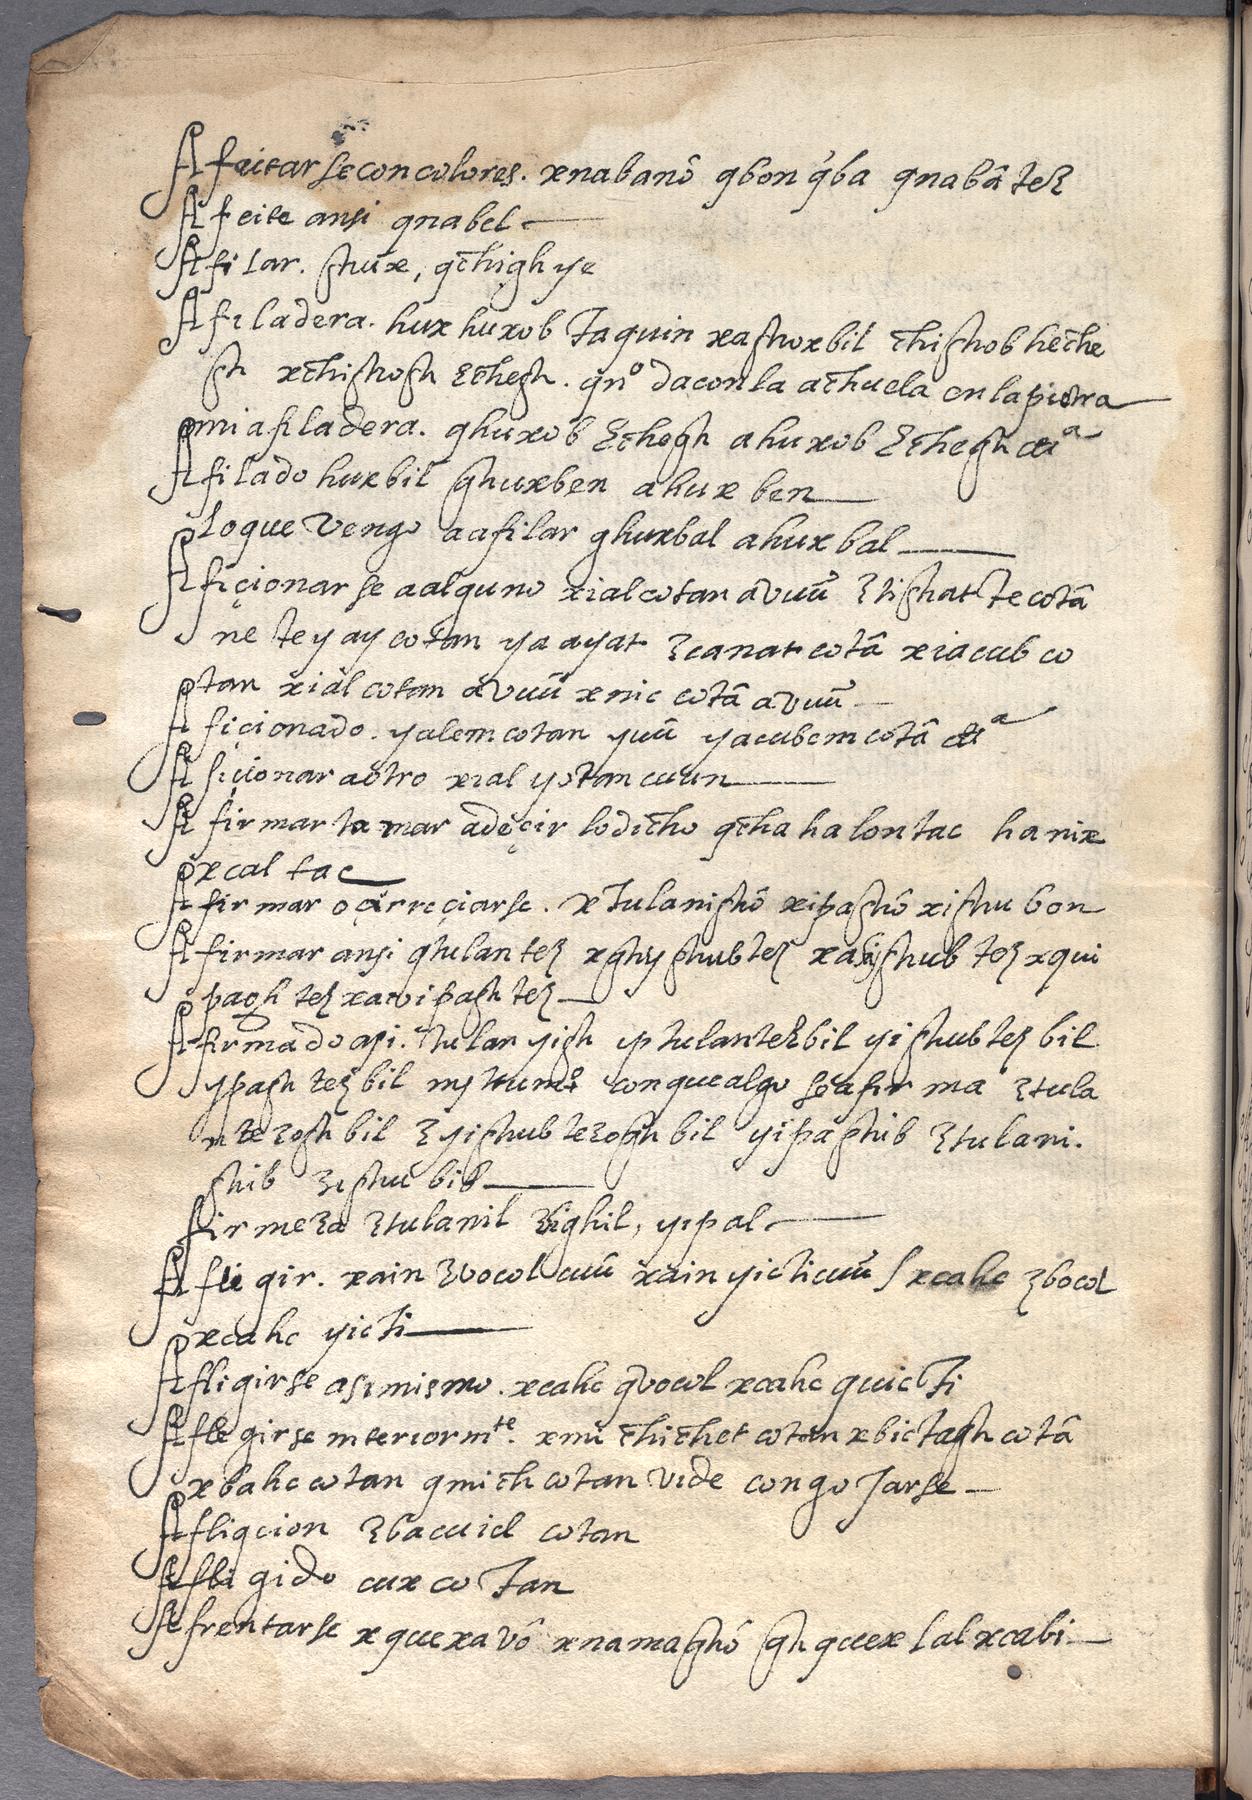 Afeitarse con colores. xnabanô qbon q̃ba qnabâ teꜫ
Afeite ansi qnabel
Afilar. ghux, qchighye
Afiladera. hux huxob Taquin xaghoxbil chighob heche
gh xchighogh ꜫchegh. qnº da con la achuela en la piedra
mi afiladera. qhuxob ꜫchegh ahuxob ꜫchegh etª
Afilado huxbil ghuxben ahux ben
lo que vengo a afilar ghuxbal ahux bal
Afiçionarse a alguno xial cotan avuũ ꜫtighat te cotâ
ne te yay cotan ya ayat ꜫcanat cotâ xiacub co
tan xial cotan avuũ xnic cotâ avuũ
Afiçionado. yalem cotan yuũ yacubem cotâ etª
Afiçionar a otro xial yotan cuun
Afirmar tomar adeçir lo dicho qcha halontac hanix
xcal tac
Afirmar o arreçiarse. xtulanighô xipaghô xighubon
Afirmar ansi qtulan teꜫ xghyghubteꜫ xayghub teꜫ xqui
pagh teꜫ xavipagh teꜫ
Afirmado asi. tulan yigh y tulanteꜫbil yighubteꜫ bil
ypagh teꜫbil instrumẽ con que algo se afirma ꜫtula
nteꜫogh bil ꜫyighubteꜫogh bil yipaghib ꜫtulani.
ghib ꜫighub bib
firmeꜫa ꜫtulanil ꜫighil, yipal
Afligir. xain ꜫvocol cuũ xain yicticuũ / xcahc ꜫbocol
xcahc yicti
Afligirse asi mismo. xcahc qvocol xcahc quicti
Afligirse interiormte. xmu chichet cotan xbictagh cotâ
xbahc cotan qmich cotan vide congoJarse
Afliqcion ꜫbacuiel cotan
Afligido cux coTan
Afrentarse xquexavô xnamaghô gh quex lal xcabi